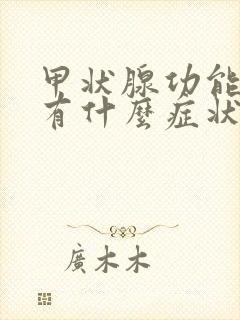 甲状腺功能
有什麼症状
廣木木